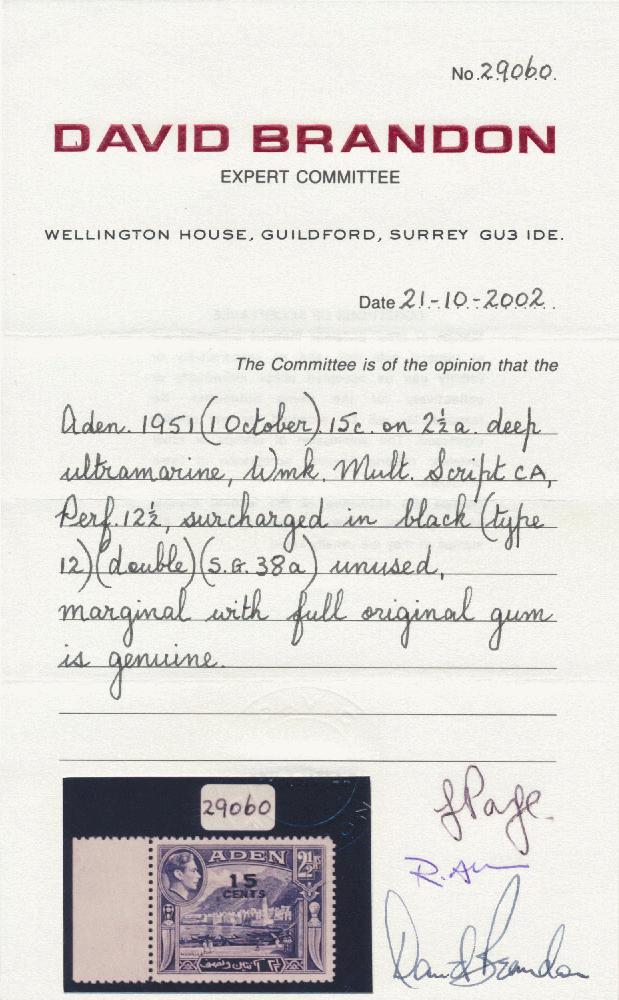 No. 29060.
DAVID BRANDON
EXPERT COMMITTEE
WELLINGTON HOUSE, GUILDFORD, SURREY GU3 IDE.
Date 21-10-2002
The Committee is of the opinion that the
Aden. 1951 (1 October). 15c. on 2½a. deep
ultramarine, Wmk. Mult. Script CA,
Perf. 12½, surcharged in black (type
12) (double) (S.G. 38a) unused,
marginal with full original gum
is genuine.
29060
ADEN
2½
15
CENTS
David Brandon